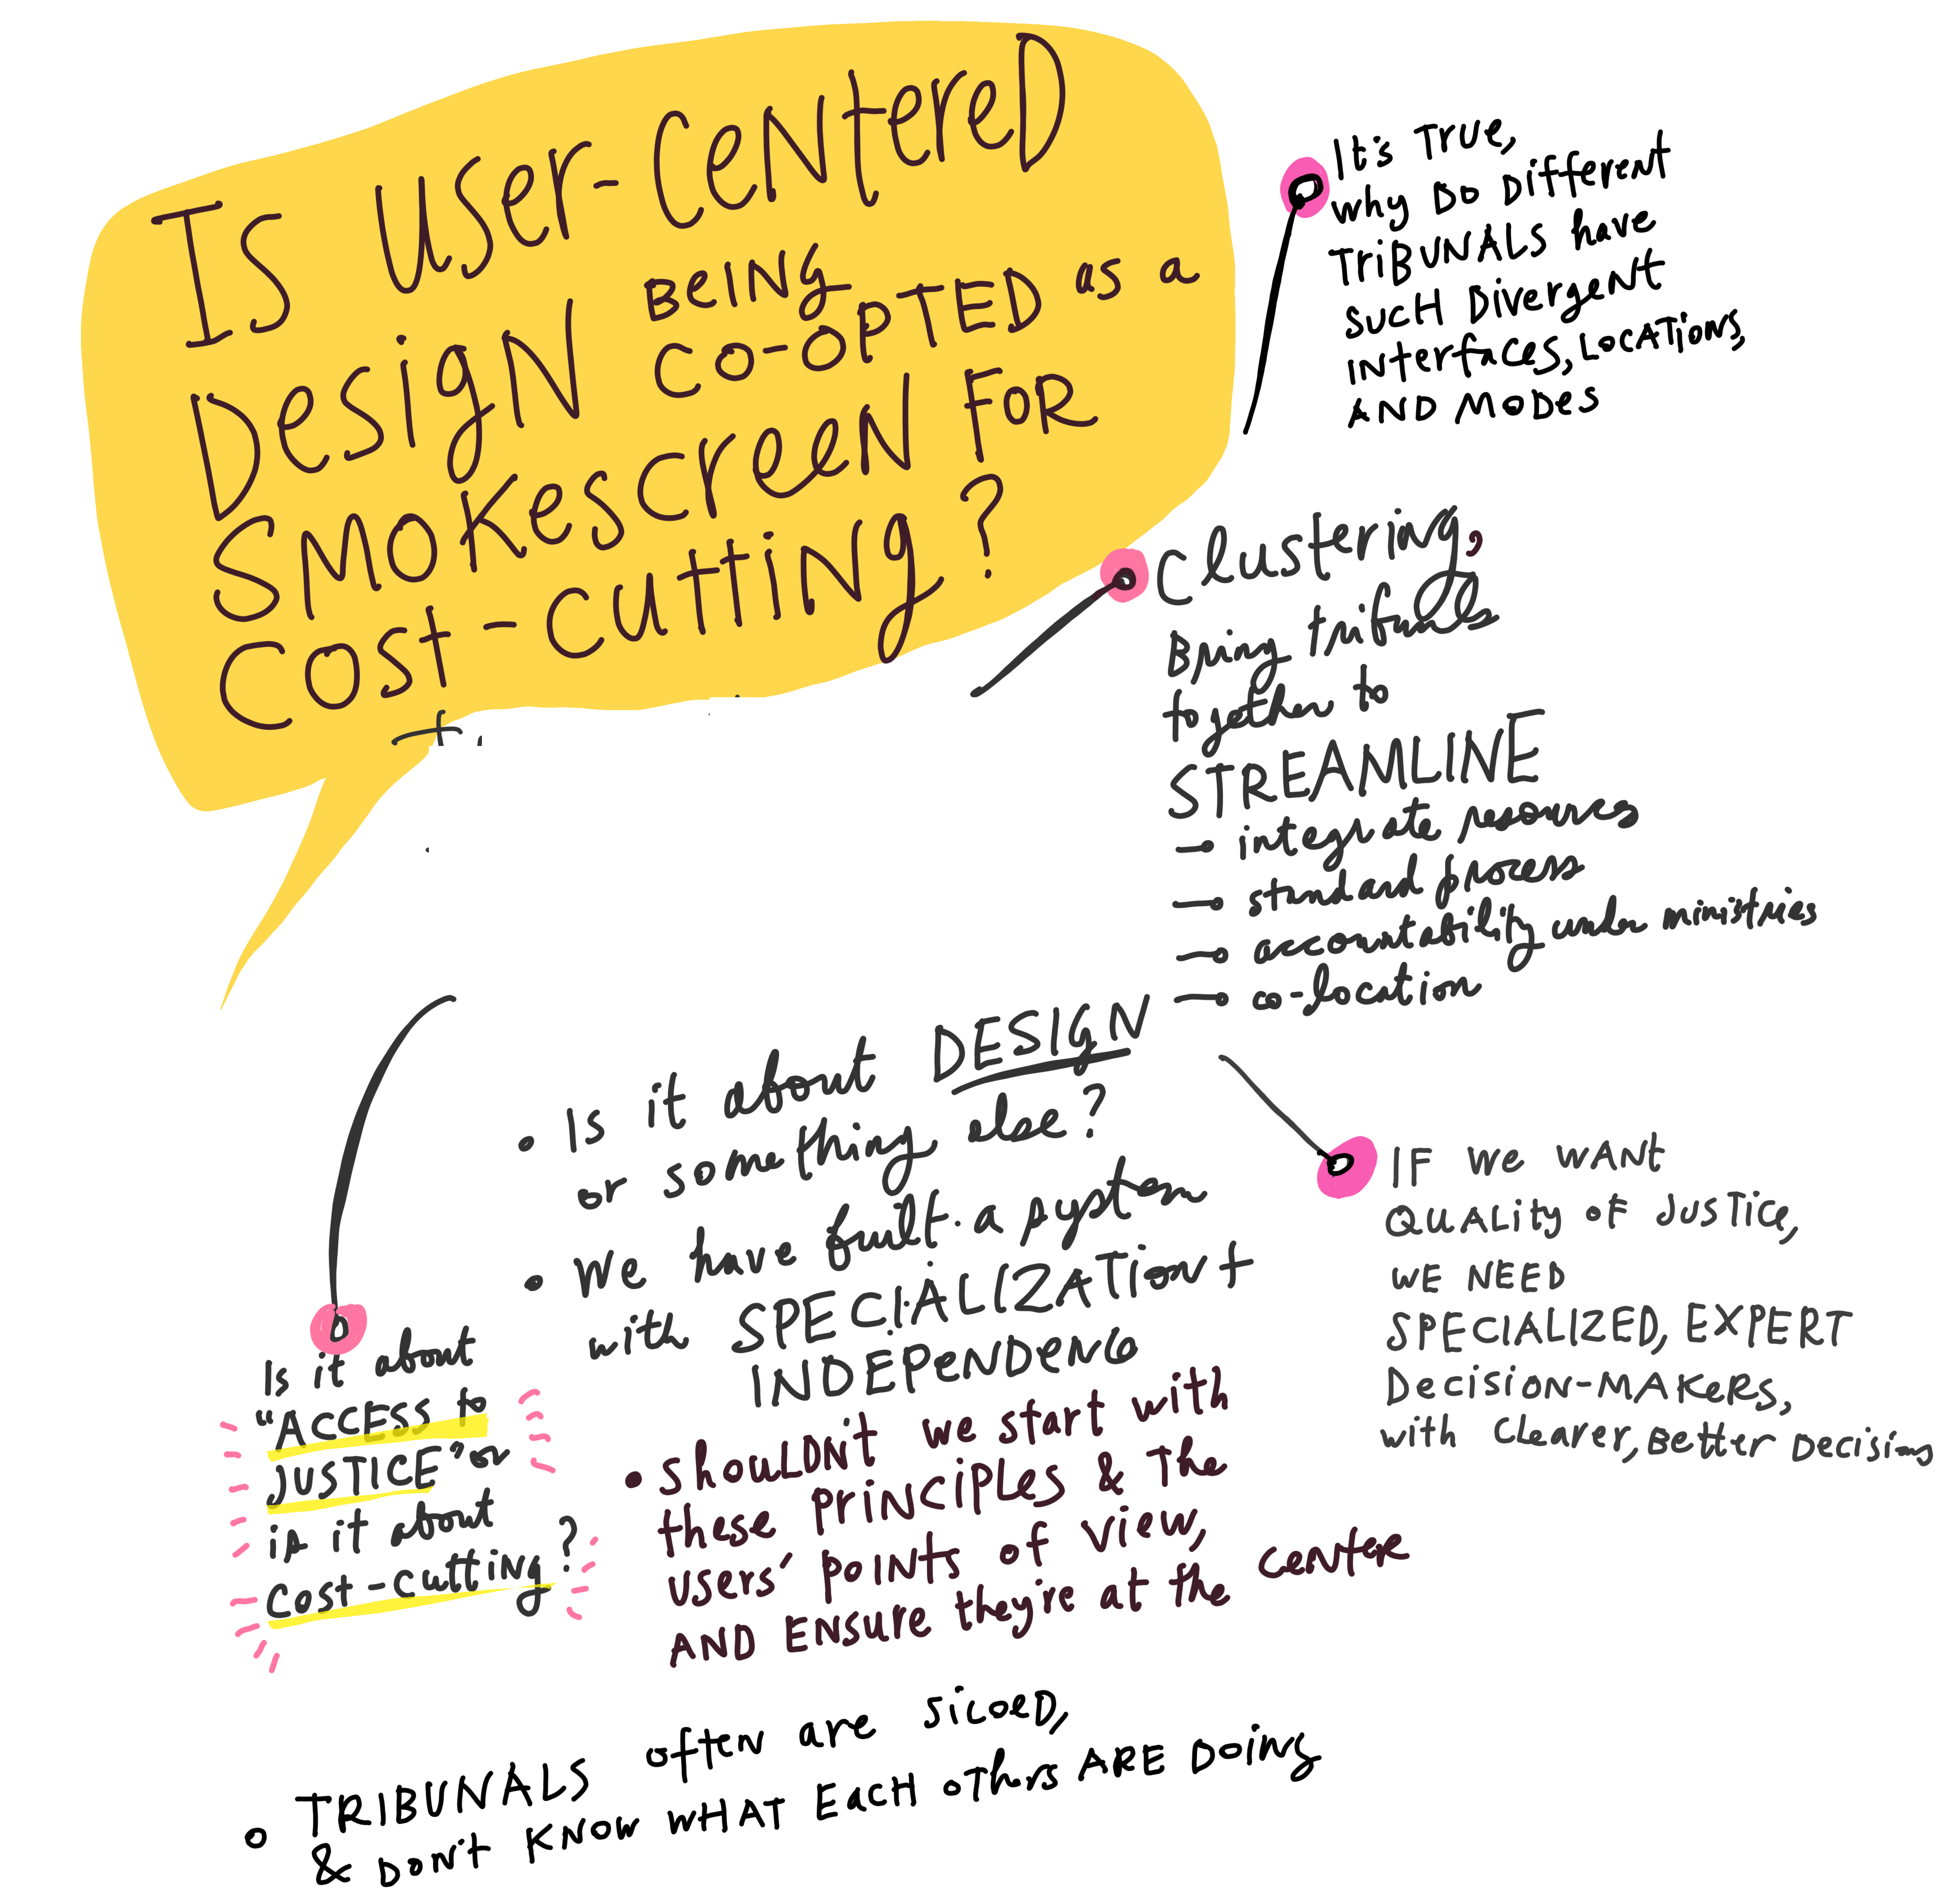 Is User-Centered
Design BEING
CO-OPTED as a
Smokescreen For
Cost-Cutting?
It's True,
why Do Different
TRIBUNALS have
such Divergent
interfaces, LOCATIONS,
AND MODES
Clustering,
Bring tribunals
together to
STREAMLINE
- integrate resources
- standard process
- accountability under ministries
- co-location
• Is it about DESIGN
or something else?
• We have built a system
with SPECIALIZATION +
INDEPENDENCE
• Shouldn't we start with
these PRINCIPLES & The
users' points of view,
AND ENSURE they're at the center
IF WE WANT
QUALity of JUSTICE,
WE NEED
SPECIALIZED, EXPERT
Decision-MAKERS,
with Clearer, Better Decising
Is it about
"ACCESS to
JUSTICE" or
is it about
cost-cutting?
• TRIBUNALS often are sicoED,
& Don't KNOW WHAT EACH OThers ARE Doing